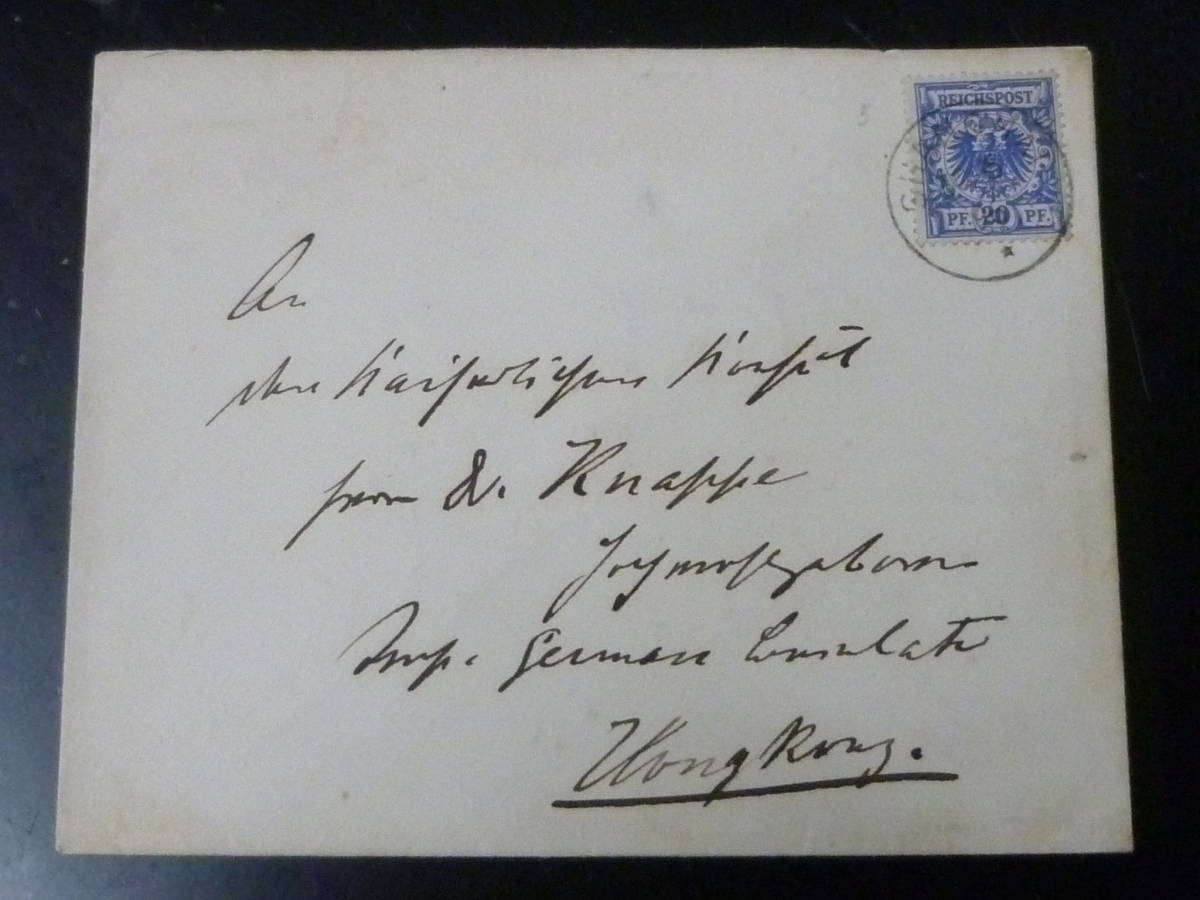 REICHSPOST
PF. 20 PF.
An
den Kaiserlichen Konsul
Herrn Dr. Knappe
Hochwohlgeboren
Imp. German Consulate
Hongkong.